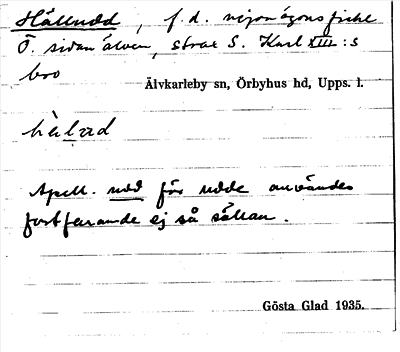 Hälludd, f.d. nejonögonsfiske
Ö. sidan älven, strax S. Karl XIII:s
bro
Älvkarleby sn, Örbyhus hd, Upps. l.
Apell. udd för udde användes
fortfarande ej så sällan.
Gösta Glad 1935.